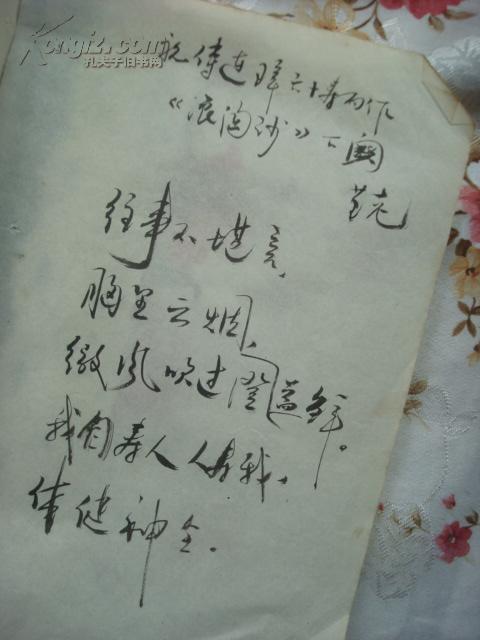 Kongfz.com
孔夫子旧书网
六十寿而作
《浪淘沙》下阕
往事不堪言,
胸里云烟,
微风吹过澄益鲜。
我自寿人人寿我,
体健神全。